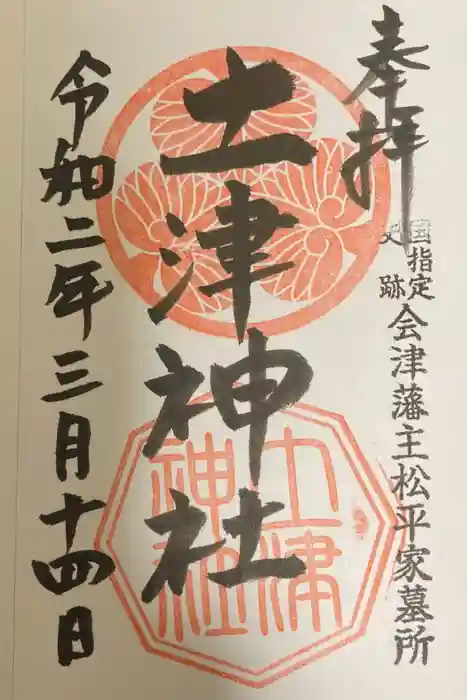 奉拝
国指定史跡 会津藩主松平家墓所
土津神社
土津神社
令和二年三月十四日